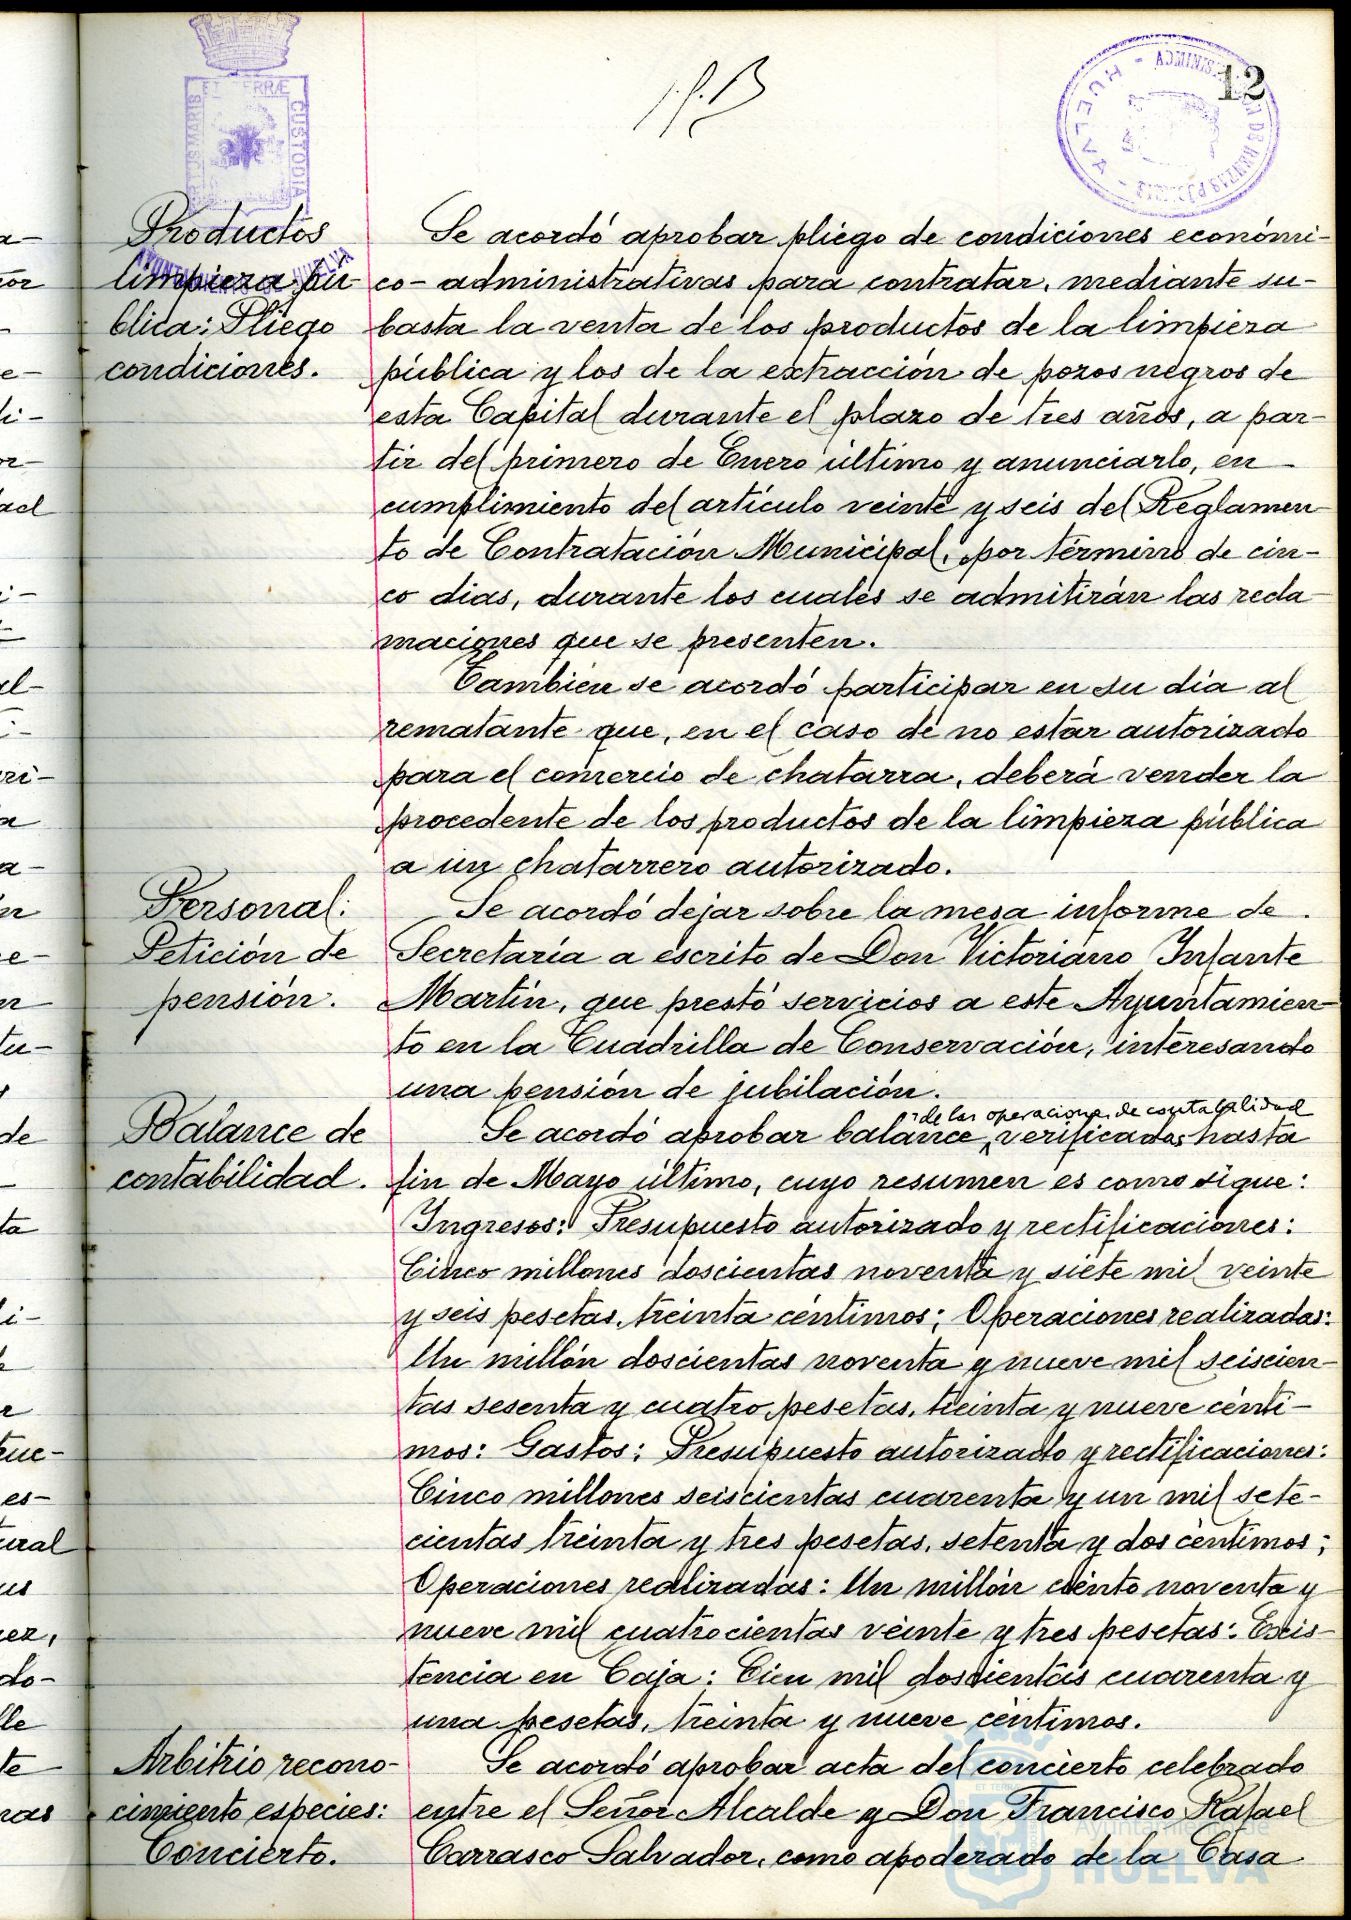 12
ET TERRÆ
CUSTODIA
AYUNTAMIENTO DE HUELVA
HUELVA
Productos
limpieza pú-
blica: Pliego
condiciones.
Se acordó aprobar pliego de condiciones económi-
co-administrativas para contratar, mediante su-
basta la venta de los productos de la limpieza
pública y los de la extracción de pozos negros de
esta Capital durante el plazo de tres años, a par-
tir del primero de Enero último y anunciarlo, en
cumplimiento del artículo veinte y seis del Reglamen-
to de Contratación Municipal, por término de cin-
co dias, durante los cuales se admitirán las recla
maciones que se presenten.
También se acordó participar en su día al
rematante que, en el caso de no estar autorizado
para el comercio de chatarra, deberá vender la
procedente de los productos de la limpieza pública
a un chatarrero autorizado.
Personal:
Petición de
pensión.
Se acordó dejar sobre la mesa informe de
Secretaría a escrito de Don Victoriano Infante
Martín, que prestó servicios a este Ayuntamien-
to en la Cuadrilla de Conservación, interesando
una pensión de jubilación.
Balance de
contabilidad.
de las operaciones de contabilidad
Se acordó aprobar balance verificadas hasta
fin de Mayo último, cuyo resumen es como sigue:
Ingresos: Presupuesto autorizado y rectificaciones:
Cinco millones doscientas noventa y siete mil veinte
y seis pesetas, treinta céntimos; Operaciones realizadas:
Un millón doscientas noventa y nueve mil seiscien-
tas sesenta y cuatro pesetas, treinta y nueve cénti-
mos: Gastos: Presupuesto autorizado y rectificaciones:
Cinco millones seiscientas cuarenta y un mil sete-
cientas treinta y tres pesetas, setenta y dos céntimos;
Operaciones realizadas: Un millón ciento noventa y
nueve mil cuatrocientas veinte y tres pesetas: Exis-
tencia en Caja: Cien mil doscientas cuarenta y
una pesetas, treinta y nueve céntimos.
Arbitrio recono-
cimiento especies:
Concierto.
Se acordó aprobar acta del concierto celebrado
entre el Señor Alcalde y Don Francisco Rafael
Carrasco Salvador, como apoderado de la Casa
Ayuntamiento de
HUELVA